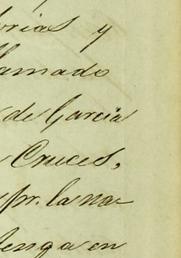 orias y
lamado
de Garcia
Cruces,
pr. la na-
tenga en